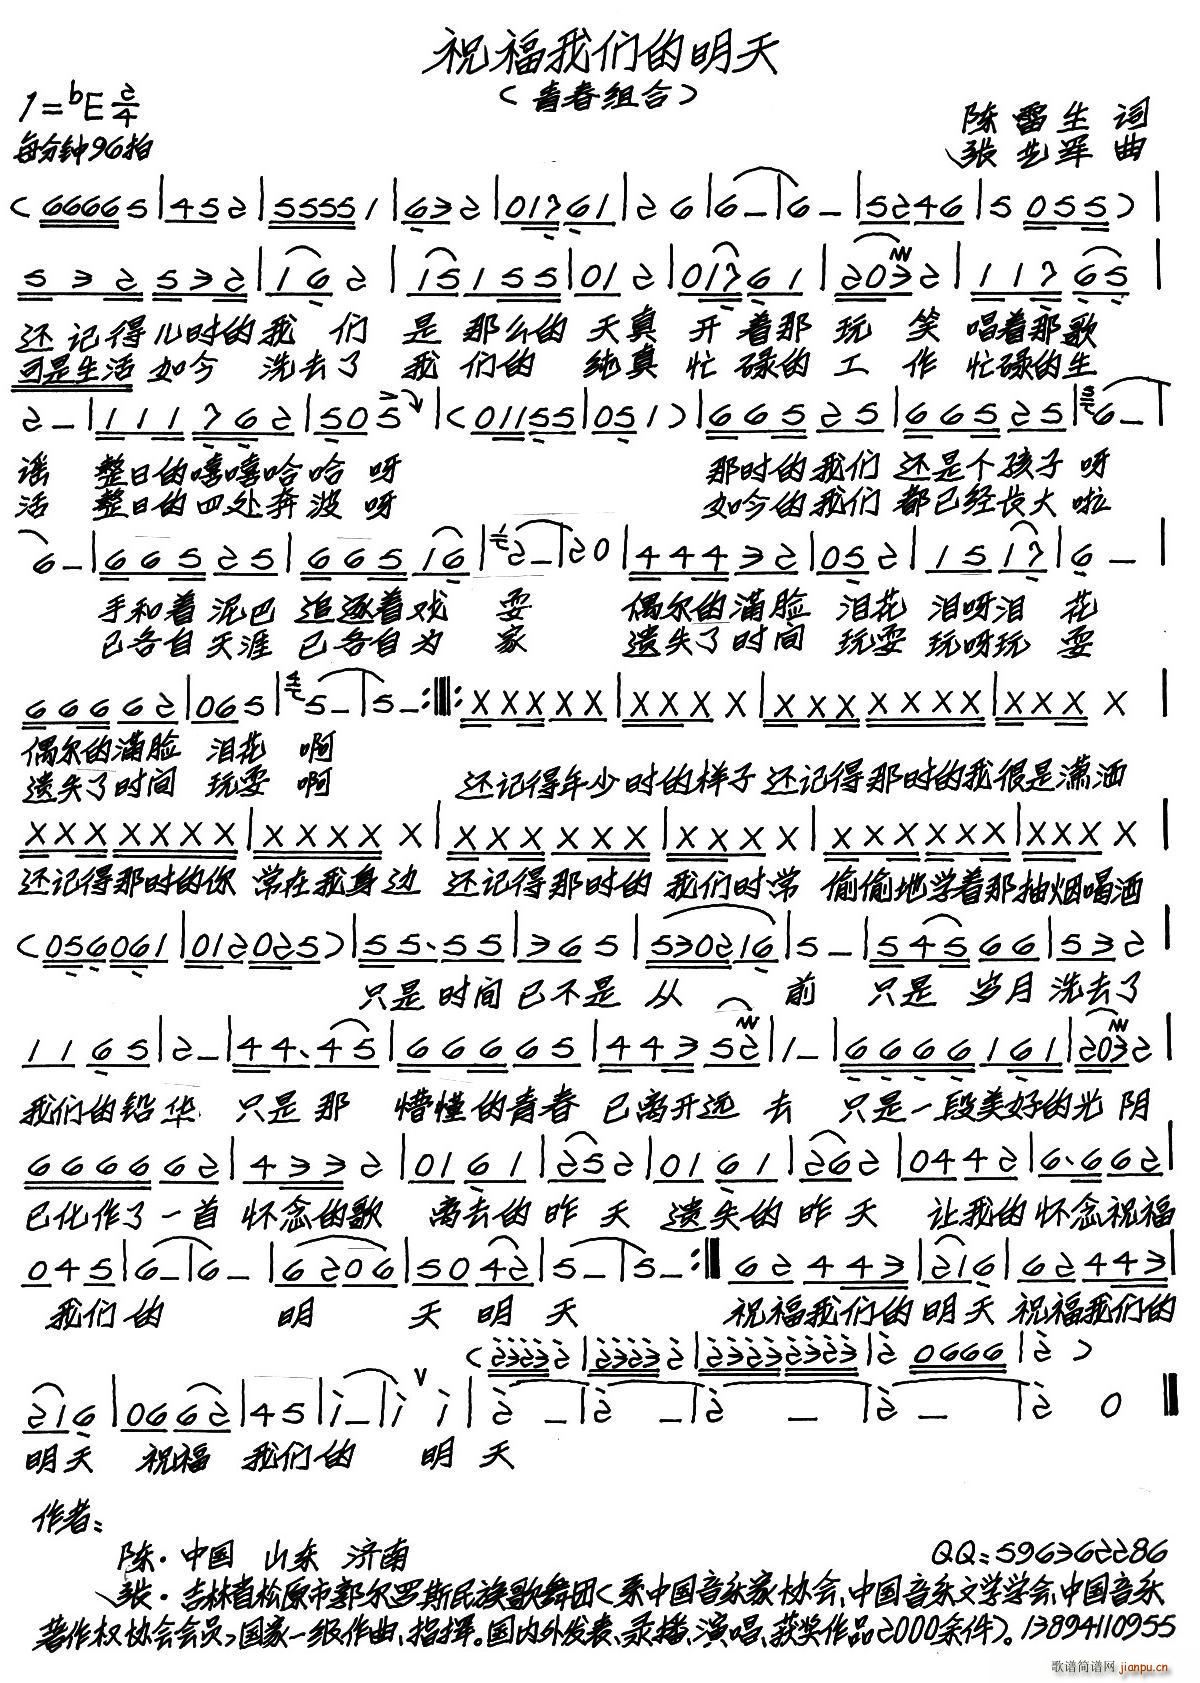 祝福我们的明天
(青春组合)
1=bE 2/4
每分钟96拍
陈雷生 词
张艺军 曲
(66665|452|55551|632|0176 1|26|6–|6–|5246|5 055)|
532 532|162|15155|012|01761|2032|117 65
还记得儿时的我们 是那么的天真 开着那玩笑 唱着那歌
可是生活如今 洗去了 我们的纯真 忙碌的工作 忙碌的生
2–|111762|505|(01155|051)|665 25|665 25|6–|
谣 整日的嘻嘻哈哈呀 那时的我们还是个孩子呀
活 整日的四处奔波呀 如今的我们都已经长大啦
6–|665 25|665 16|2–|20|44432|052|1517|6–|
手和着泥巴 追逐着戏耍 偶尔的满脸 泪花 泪呀泪花
已各自天涯 已各自为家 遗失了时间 玩耍 玩呀玩耍
66662|065|5–|5–:‖:XXXXX|XXXX|XXX XXXX|XXX X|
偶尔的满脸 泪花 啊
遗失了时间 玩耍 啊 还记得年少时的样子还记得那时的我很是潇洒
XXX XXXX|XXXX X|XXX XXXX|XXXX|XXX XXXX|XXX X|
还记得那时的你 常在我身边 还记得那时的 我们时常 偷偷地学着那抽烟喝酒
(056061|012025)|55·55|365|530216|5–|54566|532|
只是时间已不是从前 只是岁月洗去了
1165|2–|44·45|666665|44352|1–|6666161|2032|
我们的铅华 只是那 懵懂的青春已离开远去 只是一段美好的光阴
6666662|4332|0161|252|0161|262|0442|6·662|
已化作了一首 怀念的歌 离去的昨天 遗失的昨天 让我的怀念祝福
045|6–|6–|6206|5042|5–|5–:‖62443|216|62443|
我们的 明天 明天 祝福我们的明天 祝福我们的
(23232|23232|23232323|2 0666|2)
216|0662|45|i–|i i|2–|2–|2–|2–|2 0‖
明天 祝福 我们的 明天
作者:
陈·中国 山东 济南
QQ:596362286
张·吉林省松原市郭尔罗斯民族歌舞团(系中国音乐家协会、中国音乐文学学会、中国音乐
著作权协会会员,国家一级作曲、指挥。国内外发表、录播、演唱、获奖作品2000余件)。13894110955
歌谱简谱网 jianpu.cn